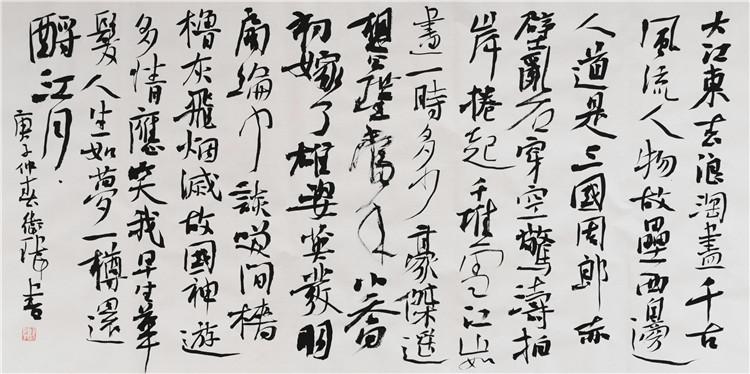 大江東去浪淘盡千古
風流人物故壘西邊
人道是三國周郎赤
壁亂石穿空驚濤拍
岸捲起千堆雪江山如
畫一時多少豪傑遥
想公瑾當年小喬
初嫁了雄姿英發羽
扇綸巾談笑間檣
櫓灰飛烟滅故國神遊
多情應笑我早生華
髮人生如夢一樽還
酹江月
庚子仲春書